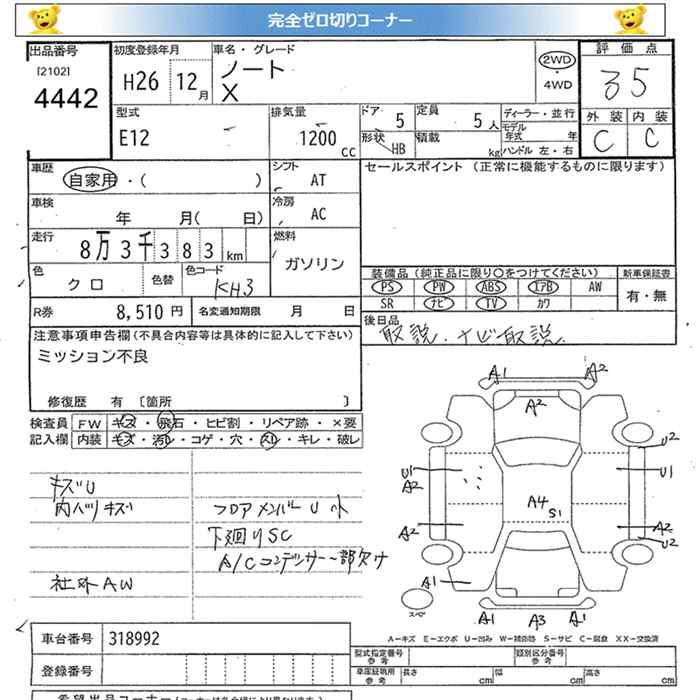 完全ゼロ切りコーナー
出品番号
[2102]
4442
初度登録年月
H26 12月
車名・グレード
ノート
X
2WD
・
4WD
評価点
35
外装 内装
C C
型式
E12
排気量
1200 cc
ドア 5
定員 5人
形状 HB
積載 kg
ディーラー・並行
モデル年式 年
ハンドル 左・右
車歴
自家用・( )
シフト
AT
セールスポイント (正常に機能するものに限ります)
車検
年 月( 日)
冷房
AC
走行
8万3千383km
燃料
ガソリン
色
クロ
色替
色コード
KH3
装備品(純正品に限り○をつけてください)
PS PW ABS エアB AW
SR ナビ TV カワ
新車保証書
有・無
R券 8,510円
名変通知期限 月 日
後日品
取説.ナビ取説
注意事項申告欄(不具合内容等は具体的に記入して下さい)
ミッション不良
修復歴 有 〔箇所 〕
検査員
記入欄
FW キズ・飛石・ヒビ割・リペア跡・×要
内装 キズ・汚レ・コゲ・穴・スレ・キレ・破レ
キズU
内ハリキズ
フロアメンバーU小
下廻りSC
A/Cコンデンサー一部欠ケ
社外AW
A1 A2
A2
U2
U1
A2
U1
A4
S1
A2
A2
U2
A1
スペア
A1 A3 A1
A-キズ E-エクボ U-凹み W-補修跡 S-サビ C-腐食 XX-交換済
車台番号 318992
登録番号
型式指定番号
参考
類別区分番号
参考
車庫証明用
参考
長さ cm
幅 cm
高さ cm
希望出品コーナー